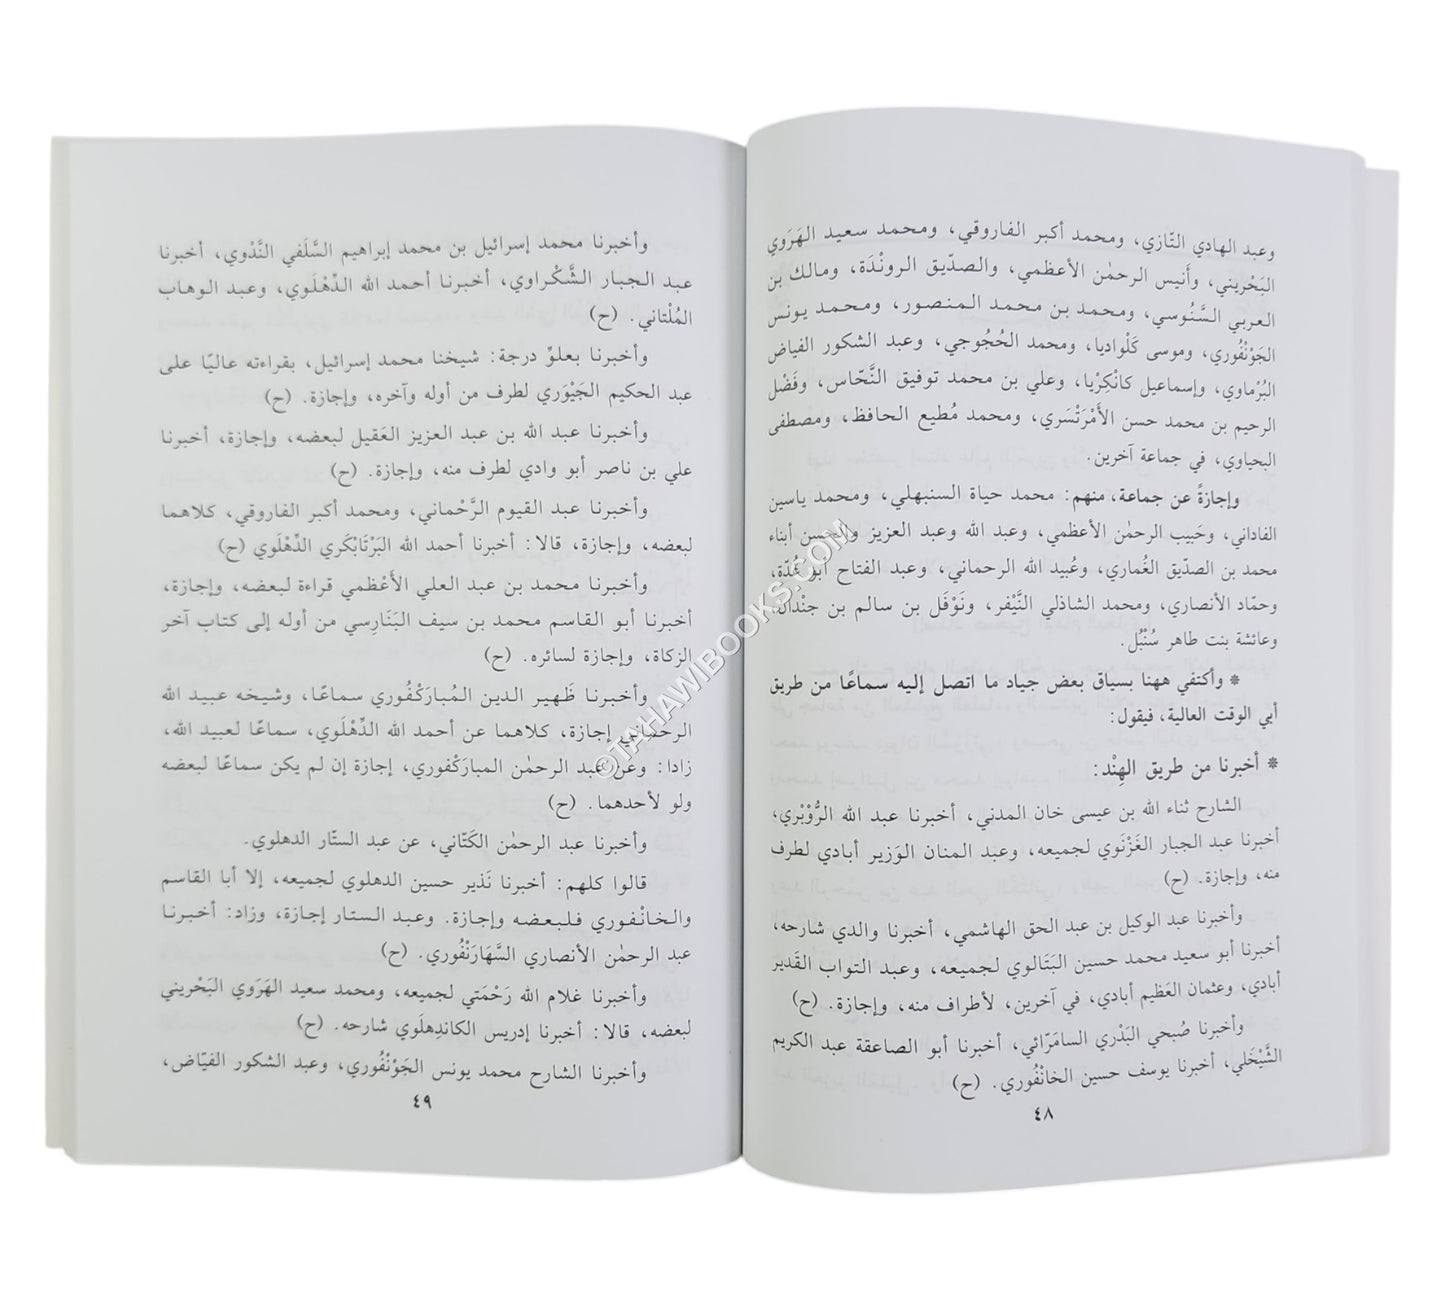 وعبد الهادي التّازي، ومحمد أكبر الفاروقي، ومحمد سعيد الهَرَوي
البَحْريني، وأَنيس الرحمٰن الأعظمي، والصدّيق الرونْدَة، ومالك بن
العربي السَّنُوسي، ومحمد بن محمد المنصور، ومحمد يونس
الجَوْنْفُوري، وموسى كَلْواديا، ومحمد الحُجُوجي، وعبد الشكور الفياض
البُرْماوي، وإسماعيل كانْكِرْيا، وعلي بن محمد توفيق النَّحّاس، وفَضْل
الرحيم بن محمد حسن الأَمْرَتْسَري، ومحمد مُطيع الحافظ، ومصطفى
البحياوي، في جماعة آخرين.
وإجازةً عن جماعة، منهم: محمد حياة السنبهلي، ومحمد ياسين
الفاداني، وحَبيب الرحمٰن الأعظمي، وعبد الله وعبد العزيز والحسن أبناء
محمد بن الصدّيق الغُماري، وعُبيد الله الرحماني، وعبد الفتاح أبو غُدّة،
وحمّاد الأنصاري، ومحمد الشاذلي النَّيْفر، ونَوْفَل بن سالم بن جنْدان،
وعائشة بنت طاهر سُنْبُل.
* وأكتفي ههنا بسياق بعض جياد ما اتصل إليه سماعًا من طريق
أبي الوقت العالية، فيقول:
* أخبرنا من طريق الهِنْد:
الشارح ثناء الله بن عيسى خان المدني، أخبرنا عبد الله الرُّوْبْري،
أخبرنا عبد الجبار الغَزْنَوي لجميعه، وعبد المنان الوَزير أبادي لطرف
منه، وإجازة. (ح)
وأخبرنا عبد الوكيل بن عبد الحق الهاشمي، أخبرنا والدي شارحه،
أخبرنا أبو سعيد محمد حسين البَتَالوي لجميعه، وعبد التواب القَدير
أبادي، وعثمان العَظيم أبادي، في آخرين، لأطراف منه، وإجازة. (ح)
وأخبرنا صُبحي البَدْري السامَرّائي، أخبرنا أبو الصاعقة عبد الكريم
الشَّيْخَلي، أخبرنا يوسف حسين الخانْفُوري. (ح)
٤٨
وأخبرنا محمد إسرائيل بن محمد إبراهيم السَّلَفي النَّدْوي، أخبرنا
عبد الجبار الشَّكْراوي، أخبرنا أحمد الله الدِّهْلَوي، وعبد الوهاب
المُلْتاني. (ح)
وأخبرنا بعلوِّ درجة: شيخنا محمد إسرائيل، بقراءته عاليًا على
عبد الحكيم الجَيْوَري لطرف من أوله وآخره، وإجازة. (ح)
وأخبرنا عبد الله بن عبد العزيز العَقيل لبعضه، وإجازة، أخبرنا
علي بن ناصر أبو وادي لطرف منه، وإجازة. (ح)
وأخبرنا عبد القيوم الرَّحْماني، ومحمد أكبر الفاروقي، كلاهما
لبعضه، وإجازة، قالا: أخبرنا أحمد الله البَرْتَابْكَري الدِّهْلَوي (ح)
وأخبرنا محمد بن عبد العلي الأَعْظمي قراءة لبعضه، وإجازة،
أخبرنا أبو القاسم محمد بن سيف البَنَارِسي من أوله إلى كتاب آخر
الزكاة، وإجازة لسائره. (ح)
وأخبرنا ظَهير الدين المُبارَكْفُوري سماعًا، وشيخه عبيد الله
الرحماني إجازة، كلاهما عن أحمد الله الدِّهْلَوي، سماعًا لعبيد الله،
زادا: وعن عبد الرحمٰن المباركْفوري، إجازة إن لم يكن سماعًا لبعضه
ولو لأحدهما. (ح)
وأخبرنا عبد الرحمٰن الكَتّاني، عن عبد الستّار الدهلوي.
قالوا كلهم: أخبرنا نَذير حسين الدهلوي لجميعه، إلا أبا القاسم
والخانْفوري فلبعضه وإجازة. وعبد الستار إجازة، وزاد: أخبرنا
عبد الرحمٰن الأنصاري السَّهَارَنْفُوري. (ح)
وأخبرنا غلام الله رَحْمَتي لجميعه، ومحمد سعيد الهَرَوي البَحْريني
لبعضه، قالا: أخبرنا إدريس الكاندِهلَوي شارحه. (ح)
وأخبرنا الشارح محمد يونس الجَوْنْفُوري، وعبد الشكور الفيّاض،
٤٩
©TAHAWIBOOKS.COM